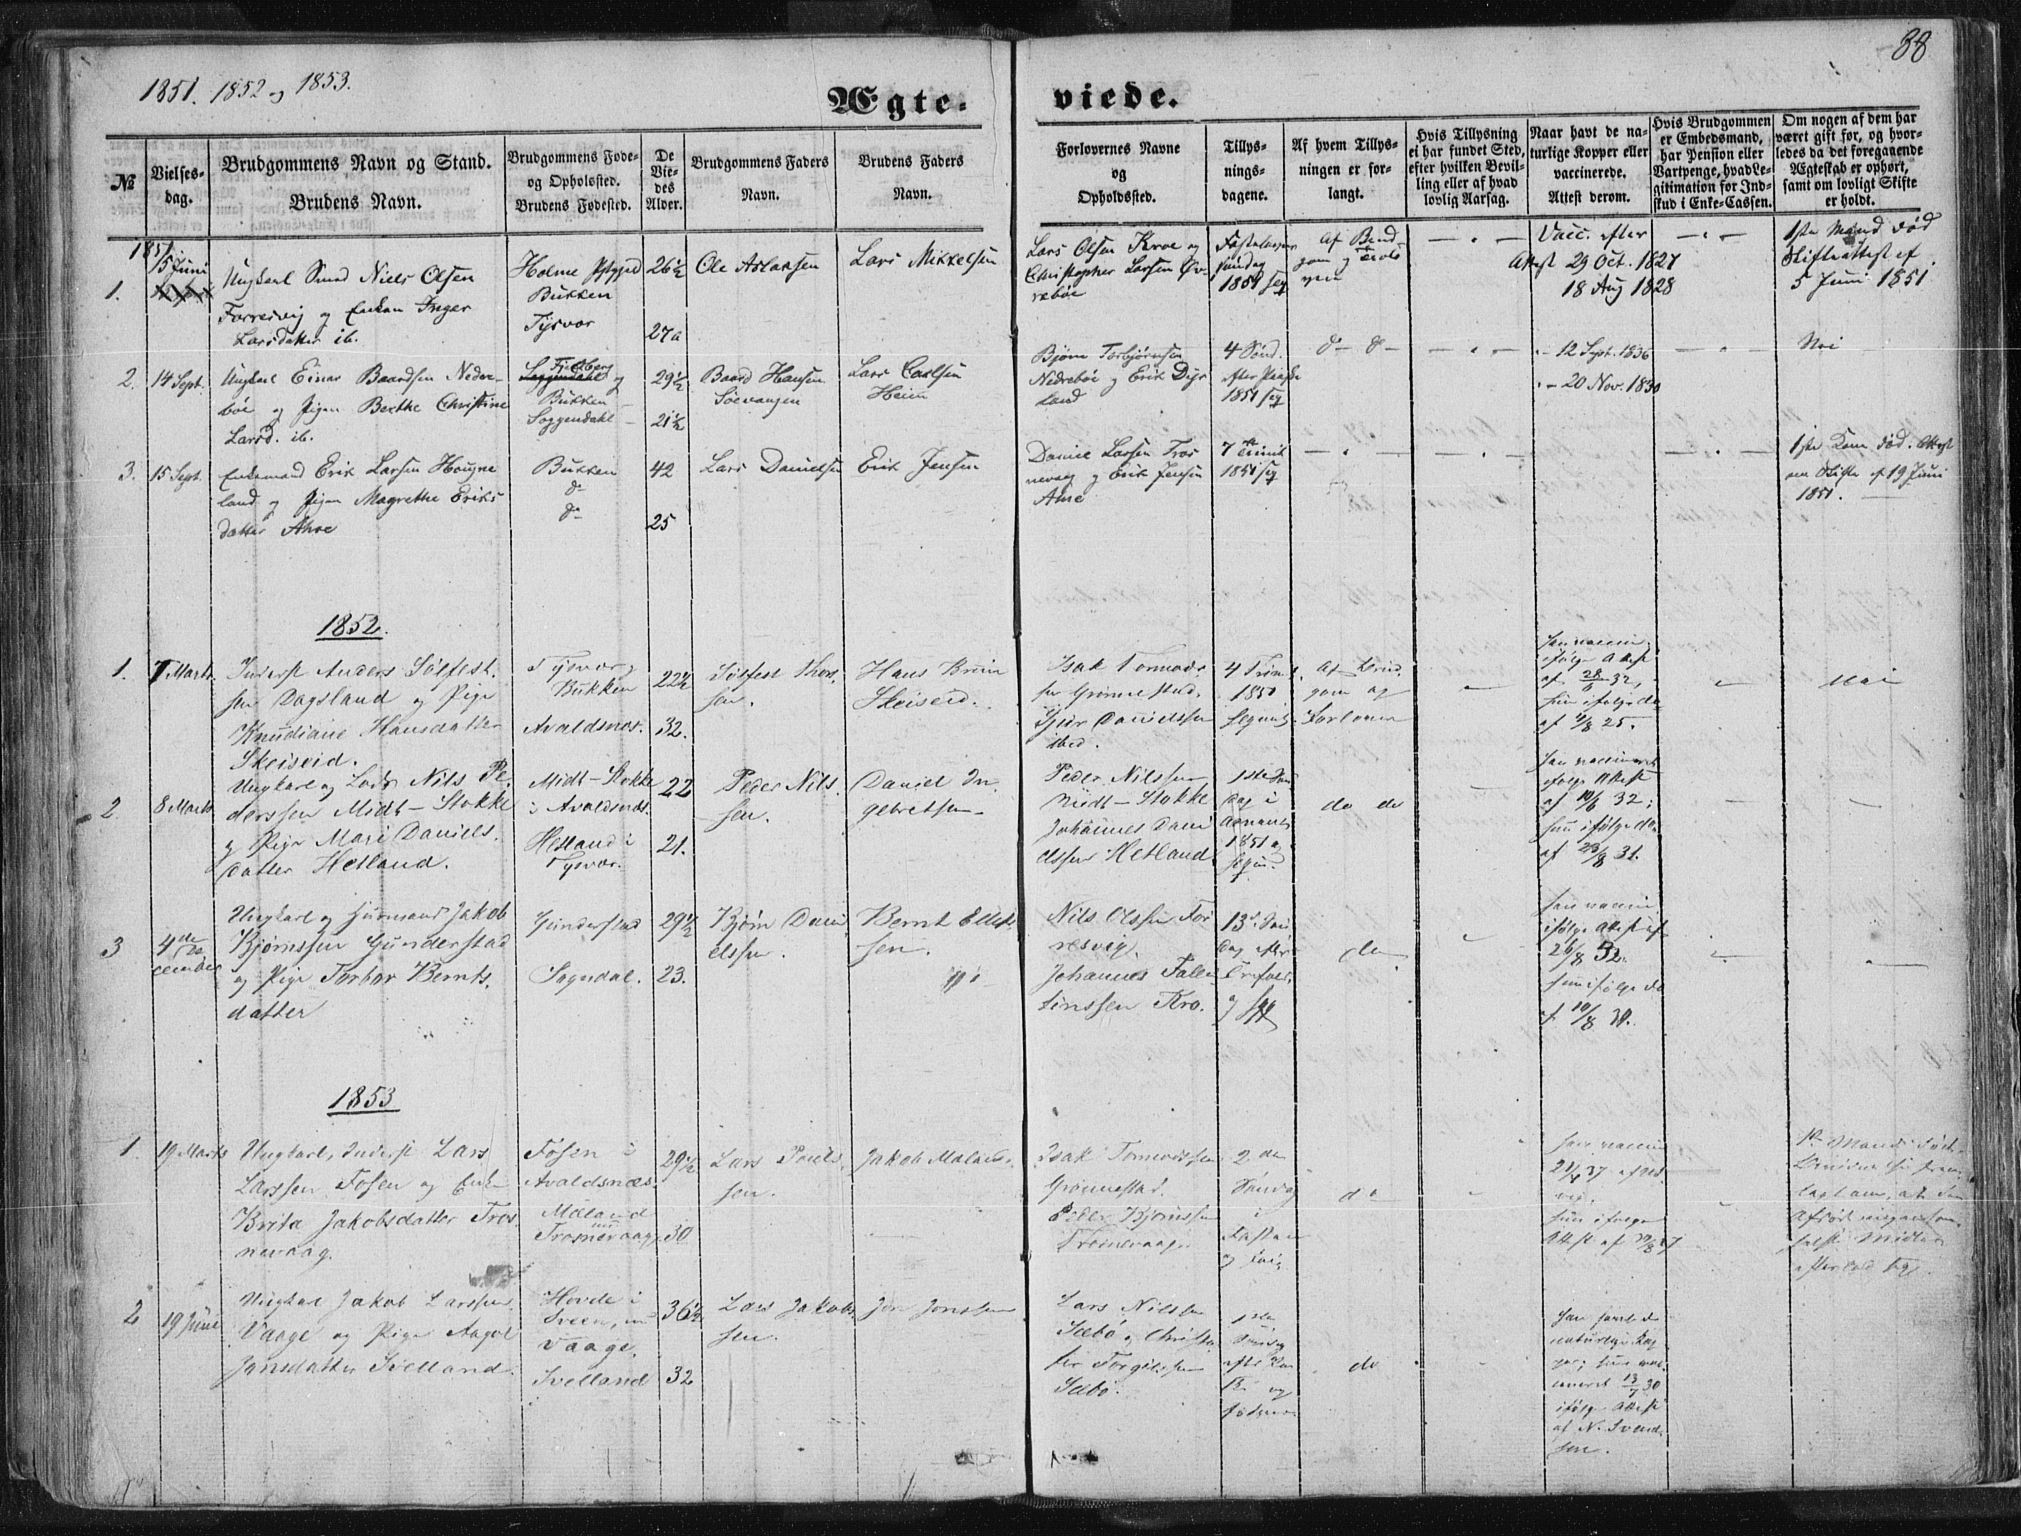 1851. 1852 og 1853.
Ægte-
viede.
88
№
Vielses-
dag.
Brudgommens Navn og Stand.
Brudens Navn.
Brudgommens Føde-
og Opholdssted.
Brudens Fødested.
De
Vie-
des
Alder.
Brudgommens Faders
Navn.
Brudens Faders
Navn.
Forlovernes Navne
og
Opholdssted.
Tillys-
nings-
dagene.
Af hvem Tillys-
ningen er for-
langt.
Hvis Tillysning
ei har fundet Sted,
efter hvilken Bevil-
ling eller af hvad
lovlig Aarsag.
Naar havt de na-
turlige Kopper eller
vaccinerede.
Attest derom.
Hvis Brudgommen
er Embedsmand,
har Pension eller
Vartpenge, hvad Le-
gitimation for Ind-
skud i Enke-Cassen.
Om nogen af dem har
været gift før, og hvor-
ledes da det foregaaende
Ægteskab er ophørt,
samt om lovligt Skifte
er holdt.
1851
1.
15 Juni
Ungkarl Smed Niels Olsen
Forresvig og Enken Inger
Larsdatter ib.
Holme
Bukken
Tysvær
26½
27a
Ole Aslaksen
Lars Mikkelsen
Lars Olsen Kroe og
Christopher Larsen Øv-
rebøe
Fastelavns
søndag
1851 seq
Af Brud
gom og
Vacc. efter
Attest 29 Oct. 1827
18 Aug 1828
1ste Mand død
Skifteattest af
5 Juni 1851.
2.
14 Sept.
Ungkarl Einar Baardsen Nedre-
bøe og Pigen Berthe Christine
Larsd. ib.
Fjelberg
og
Bukken
Soggendahl
29½
21½
Baard Hansen
Lars Carlsen
Heim
Bjørn Torbjørnsen
Nedrebøe og Erik Dyr
land
4 Sønd.
efter Paaske
1851 seq
do do
12 Sept. 1836
20 Nov. 1830
Nei
3.
15 Sept.
Enkemand Erik Larsen Hougne
land og Pigen Magrethe Eriks
datter Ahoe
Bukken
do
do
42
25
Lars Danielsen
Erik Jensen
Daniel Larsen Tros
nevaag og Erik Jensen
7 Trinit
1851 seq
1ste Kone død. Attest
om Skifte af 19 Juni
1851.
1852.
1.
7 Marts
Inderst Anders Sølfest-
sen Dagsland og Pige
Knudiane Hansdatter
Skeiseid.
Tysvær
Bukken
Avaldsnæs.
22½
32.
Sølfest Thor
sen.
Hans Bruun
Skeiseid.
Isak Tormods-
sen Grønnestad.
Daniels­sen
ibid.
4
1851
Af Brud
gom og
Forlover
Han vaccin
ifølge Attest
af 28/6 32,
hun ifølge do
af 4/8 25.
Nei
2
8 Marts
Ungkarl og Lods Nils Pe-
derssen Midt-Stokke
og Pige Mari Daniels-
datter Hetland.
Midt-Stokke
i Avaldsnæs.
Hetland i
Tysvær.
22
21.
Peder Nils-
sen.
Daniel In-
gebretsen
Peder Nilssen
Midt-Stokke
Johannes Dani
elssen Hetland
1ste Søn
dag i
Advent
1851 og
do do
Han vaccineret
ifølge Attest
af 10/6 32;
hun ifølge do
af 23/8 31.
3
4de De
cember
Ungkarl og Huusmand Jakob
Bjørnssen Gunderstad
og Pige Torbor Bernts-
datter
Gunderstad
Sogndal.
29½
23.
Bjørn Dani
elssen.
Bernt Ellef-
sen.
Nils Olssen For
resvig.
Johannes Falen-
tinssen Kro.
13de Søn
dag efter
Trefold.
do
Han vaccin
ifølge Attest af
26/8 32.
hun ifølge do
af 10/8 30.
1853
1.
19 Marts
Ungkarl, Inderst Lars
Larssen Fosen og Enke
Brita Jakobsdatter Tros-
nevaag.
Føsen i
Avaldsnæs.
Mæland
nu
Trosnevaag
29½
30
Lars Pouls-
sen.
Jakob Maland
Isak Tormodssen
Grønnestad.
Peder Bjørnssen
Trosnevaag.
2den
Søndag
i
Fasten
do
Han vaccin
21/4 37 af
hun ifølge
Attest af
1ste Mand død
2
19 Juni
Ungkarl Jakob Larssen
Vaage og Pige Aagot
Jonsdatter Svelland.
Hovde i
Sveen, nu
Vaage.
Svelland
36½
32
Lars Jakobs-
sen.
Jon Jonssen
Lars Nilssen
Sæbø og Christo
fer Torgilssen
Sæbø.
1ste
Søndag
efter
do
Han havt de
naturlige Kop
per; hun vac
cineret 13/7 30
ifølge Attest
af N. Svend-
sen.